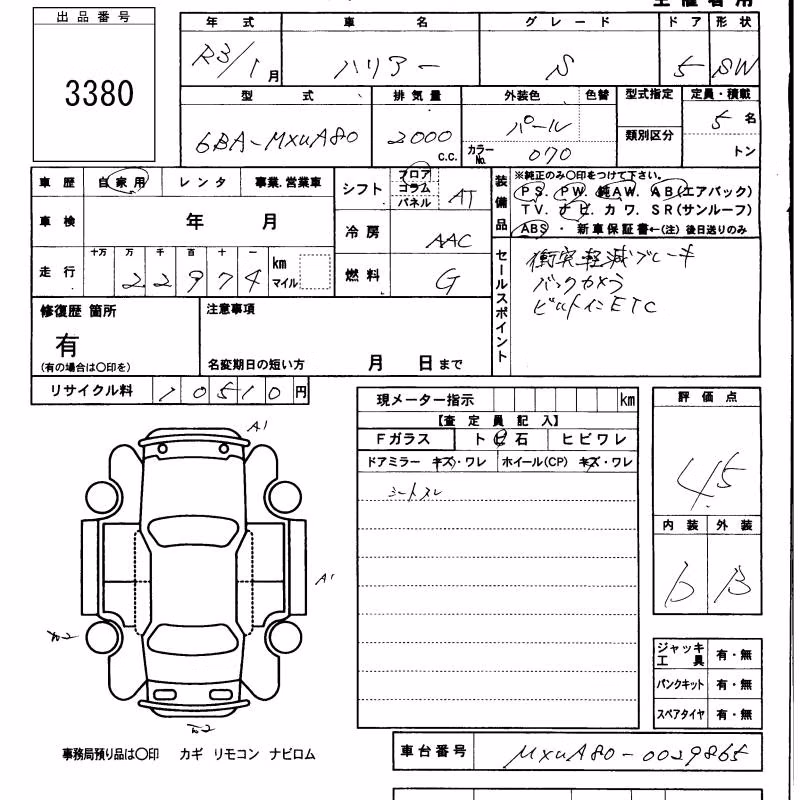 出品番号
3380
年式 車名 グレード ドア 形状
R3/1月 ハリアー S 5 SW
型式 排気量 外装色 色替 型式指定 定員・積載
6BA-MXUA80 2000 c.c. パール 類別区分 5名
カラーNo. 070 トン
車歴 自家用 レンタ 事業.営業車
シフト フロア コラム パネル AT
装備品 ※純正のみ〇印をつけて下さい。
PS. PW. 純AW. AB(エアバック)
TV. ナビ. カワ. SR(サンルーフ)
ABS ・ 新車保証書←(注) 後日送りのみ
車検 年 月
冷房 AAC
走行 十万 万 千 百 十 一
22974 km マイル
燃料 G
セールスポイント
衝突軽減ブレーキ
バックカメラ
ビルトインETC
修復歴 箇所
有
(有の場合は〇印を)
注意事項
名変期日の短い方 月 日まで
リサイクル料 10510円
現メーター指示 km
【査定員記入】
Fガラス トビ石 ヒビワレ
ドアミラー キズ・ワレ ホイール(CP) キズ・ワレ
シートスレ
評価点
4.5
内装 外装
b B
A1
A1
ジャッキ工具 有・無
パンクキット 有・無
スペアタイヤ 有・無
事務局預り品は〇印 カギ リモコン ナビロム
車台番号 MXUA80-0029865